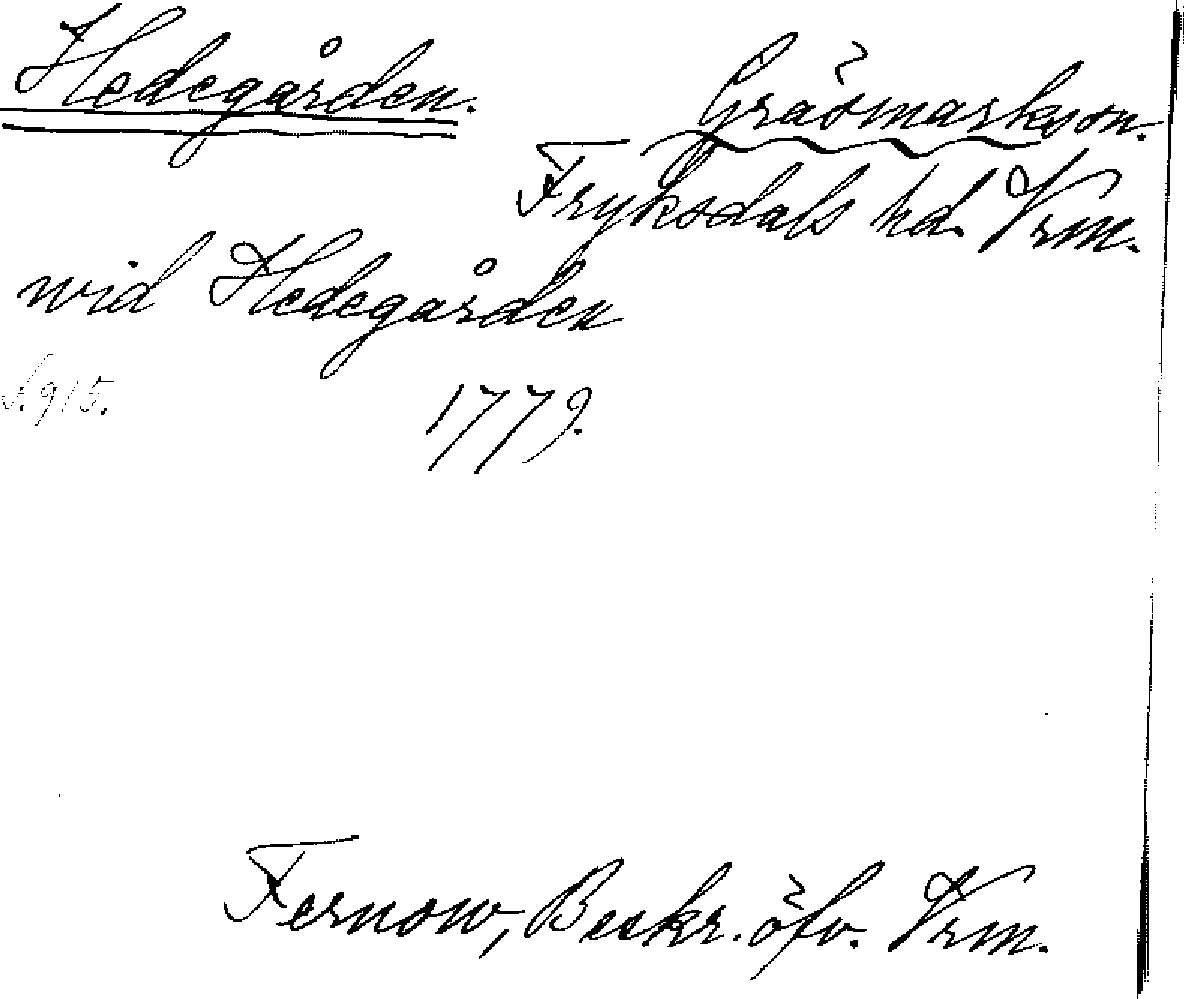 Hedegården.
Gräsmarks sn.
Fryksdals hd. Vrm.
wid Hedegården
S. 915.
1779.
Fernow, Beskr. öfv. Vrm.